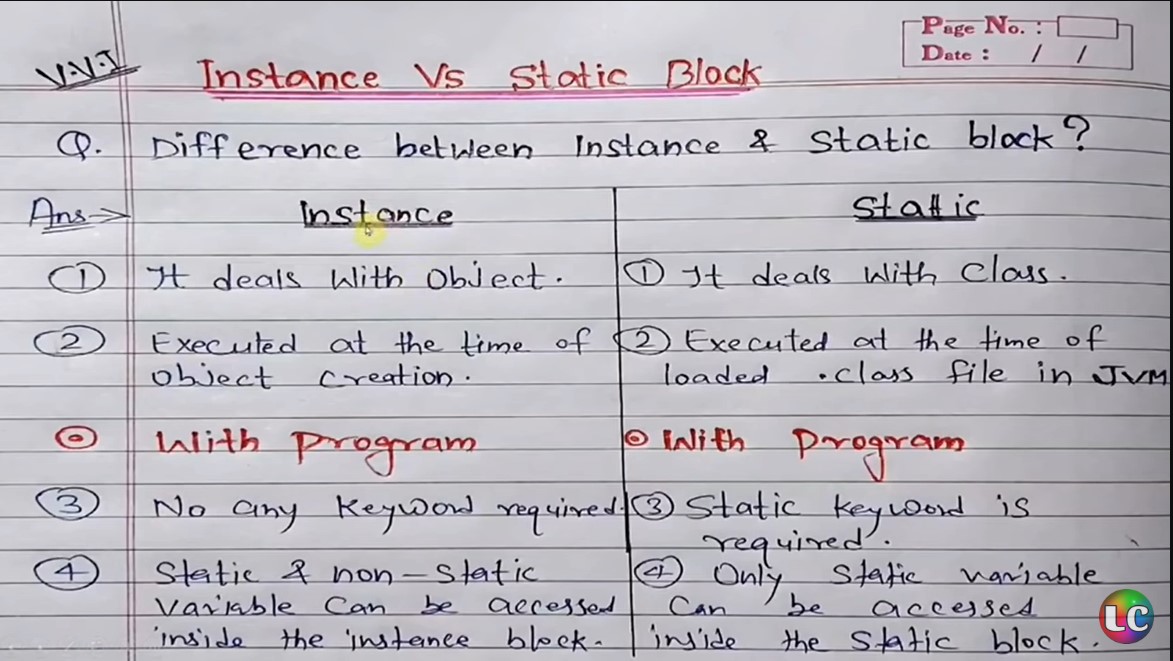 Page No. :
Date : / /
V.V.I
Instance Vs Static Block
Q. Difference between Instance & Static block?
Ans→ Instance
Static
① It deals With Object.
① It deals With Class.
② Executed at the time of
Object Creation.
② Executed at the time of
loaded .class file in JVM
⊙ With program
⊙ With program
③ No any Keyword required.
③ Static keyword is
required.
④ Static & non-static
Variable Can be accessed
inside the instance block.
④ Only Static variable
Can be accessed
inside the Static block.
LC